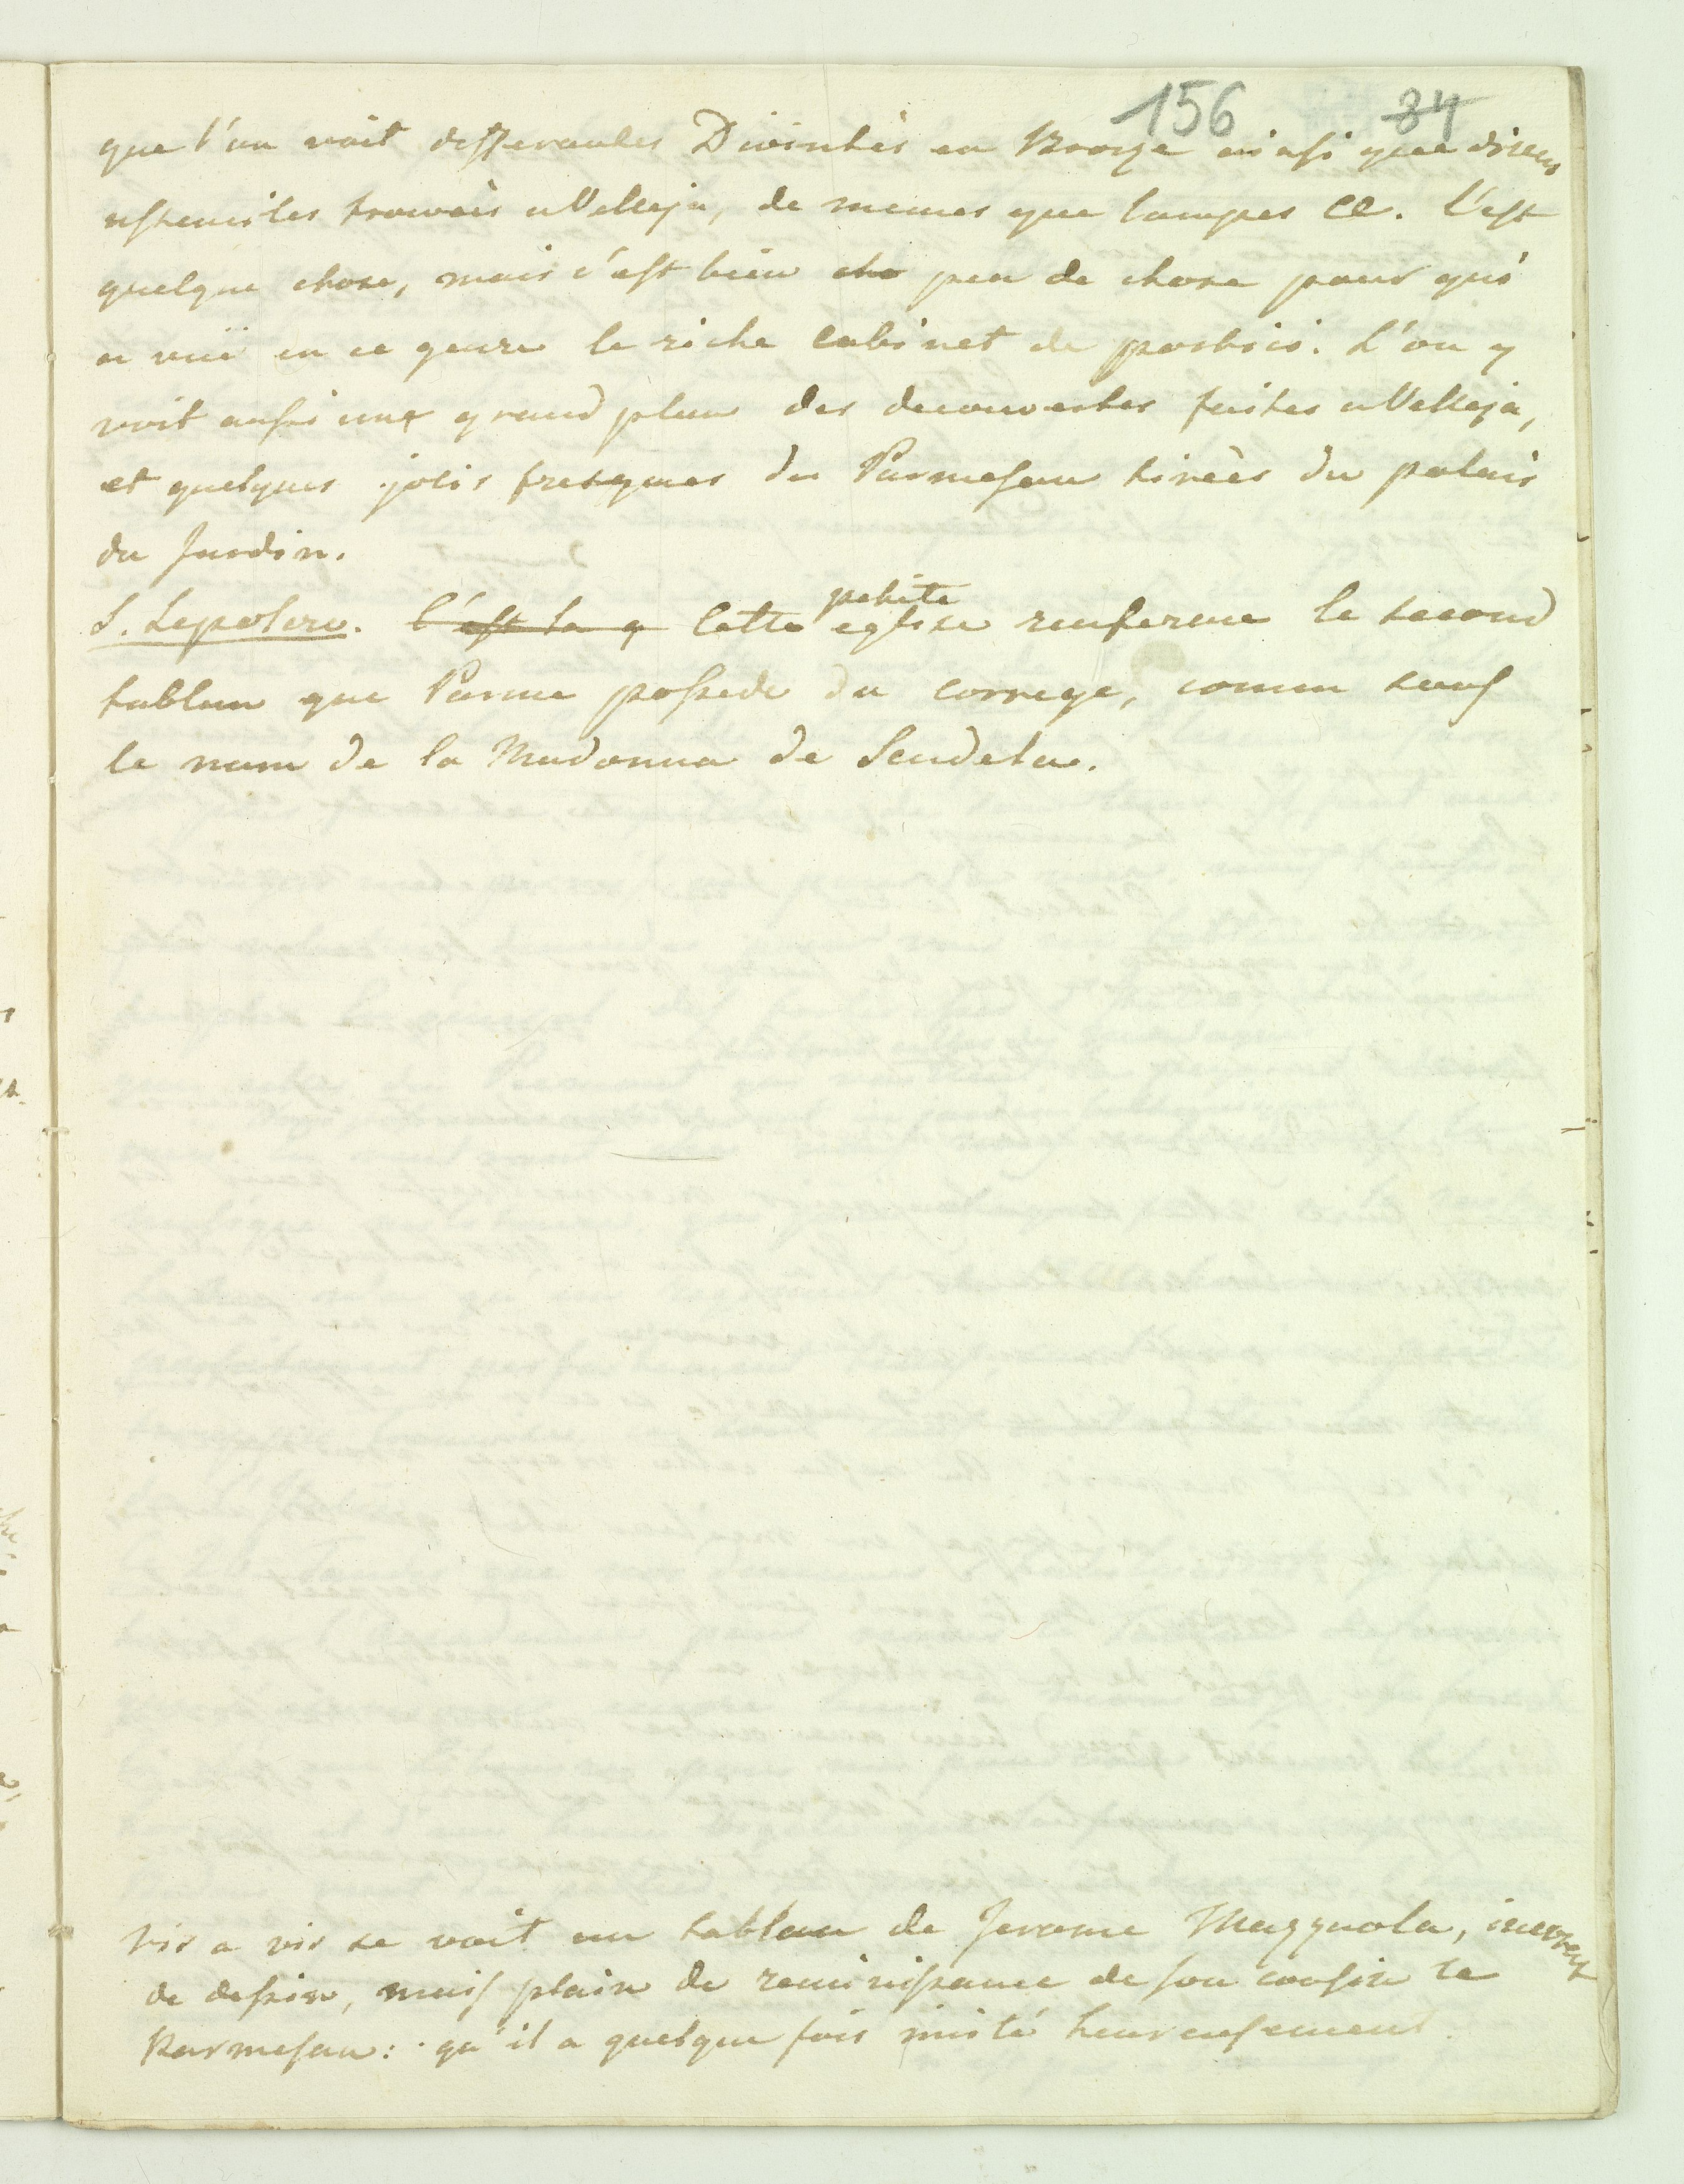 156 84
que l'on voit differantes Divinités en Bronze ainsi que divers
ustensiles trouvès a Velleja, de memes que lampes &c. C'est
quelque chose, mais c'est bien cho peu de chose pour qui
a vuë en ce genre le riche cabinet de portici. L'on y
voit aussi une grand plan des decouvertes faites a Velleja,
et quelques jolis fresques du Parmesan tirèes du palais
du Jardin.
S. Sepolcro. C'est la q Cette petite eglise renferme le second
tableau que Parme possede du correge, connu sous
le nom de la Madonna de Scudela.
vis a vis se voit un tableau de Jerome Mazzuola, incorrect
de dessin, mais plain de reminissance de son cousin le
Parmesan: qu'il a quelque fois imité heureusement.